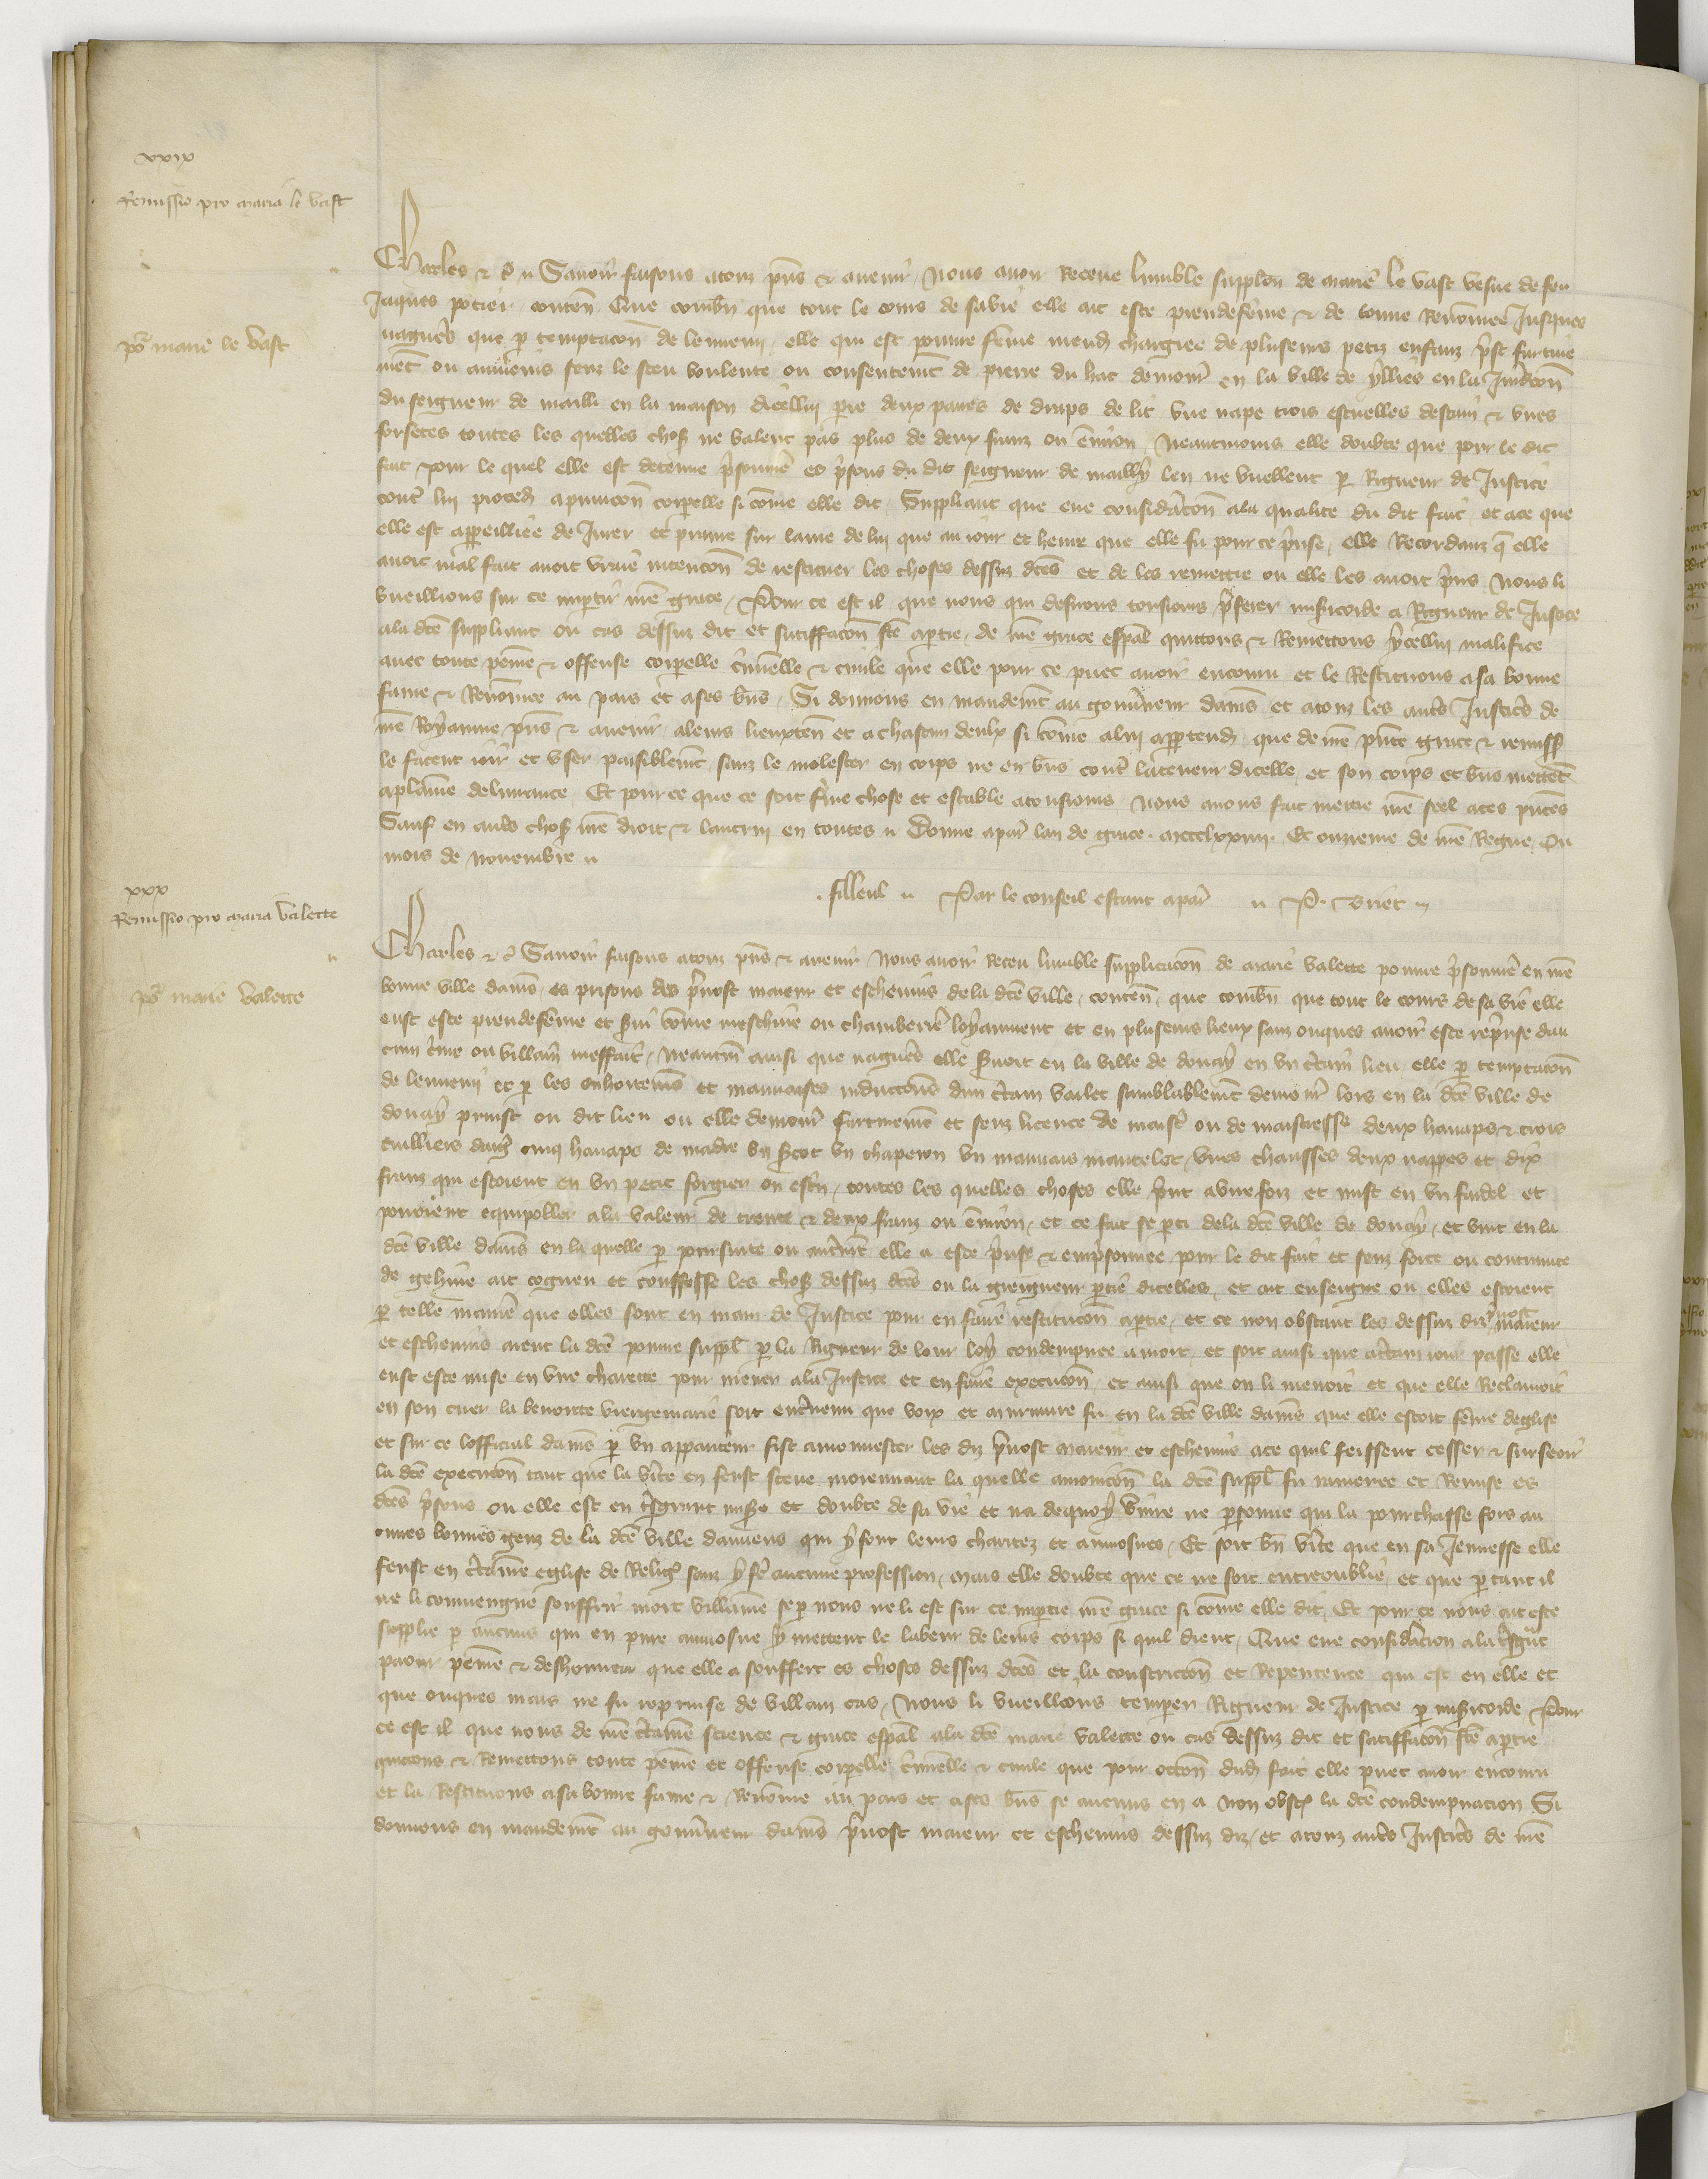 xxix
Remissio pro maria le vast
Charles &c. Savoir faisons a touz pñs & avenir Nous avoir receue lumble supplon de marie le vast vesve de feu
Jaques potier conteñ Que combñ que tout le cours de sa vie elle ait este preudefẽme & de bonne renõmee Jusques
nagueres que p temptacoñ de lennemi elle qui est povre fẽme mend chargiee de pluseurs petiz enfanz prist furtive
pour marie le vast
mẽt ou autremẽt senz le sceu voulente ou consentemẽt de pierre du hac demour en la ville de yllies en la Juridicoñ
du seigneur de mailli en la maison dicellui pre deux paires de draps de lit une nape trois escuelles destaim & unes
forsetes toutes les quelles choses ne valent pas plus de deux frans ou environ Neantmoins elle doubte que pour le dit
fait pour le quel elle est detenue prisonniere es prisons du dit seigneur de mailly len ne vuellent p Rigueur de Justice
contre lui proced a punicoñ corpelle si cõme elle dit Suppliant que eue consideracoñ a la qualite du dit fait et a ce que
elle est appeilliee de Jurer et prenre sur lame de lui que au jour et heure que elle fu pour ce prinse elle Recordanz q̃ elle
avoit mal fait avoit vraie intencoñ de restituer les choses dessuz dẽes et de les remettre ou elle les avoit prins Nous li
vueillions sur ce impartir nrẽ grace Pour ce est il que nous qui desirons tousjours preferer misicorde a Rigueur de Justice
a la dcẽ suppliant ou cas dessuz dit et satiffacoñ fcẽ a ptie de nrẽ grace espãl quittons & Remettons ycellui malifice
avec toute peine & offense corpelle crimelle & civile que elle pour ce puet avoir encouru et le Restituons a sa bonne
fame & Renõmee au pais et a ses biens Si donnons en mandemẽt au gouverneur damiẽs et a touz les autres Justiciers de
nrẽ Royaume pñs & avenir a leurs lieuxteñ et a chascun deulx si cõme a lui appartend que de nrẽ pñte grace & remiss
le facent joir et user paisiblemẽt sanz le molester en corps ne en biens contre la teneur dicelle et son corps et biens mettent
a plaine delivrance Et pour ce que ce soit ferme chose et estable a tousjours Nous avons fait mettre nrẽ seel a ces pñtes
Sauf en autres choses nrẽ droit & lautrui en toutes Donne a paris lan de grace mccclxxiiii Et onzieme de nrẽ Regne Ou
mois de novembre
filleul Par le conseil estant a paris P. Briet
xxx
Remissio pro maria Valette
Charles &c. Savoir faisons a touz pñs & avenir Nous avoir receu lumble supplicacoñ de marie Valette povre prisonniere en nrẽ
pour marie Valette
bonne ville damiẽs es prisons des prevost maieur et eschevins de la dcẽ ville conteñ que combñ que tout le cours de sa vie elle
eust este preudefẽme et servi cõme meschine ou chamberiere loyaument et en pluseurs lieux sanz onques avoir este reprinse dau
cun crime ou villain meffait Neantm ainsi que nagueres elle servoit en la ville de douay en un certain lieu elle p temptacoñ
de lennemi et p les enhortemẽs et mauvaises inductions dun certain varlet semblablemẽt demour lors en la dcẽ ville de
douay prinst ou dit lieu ou elle demour furtivemẽt et senz licence de maistre ou de maistresse deux hanaps & trois
cuilliers darg cinq hanaps de madre un scot un chaperon un mauvais mantelet unes chausses deux nappes et dix
franz qui estoient en un petit forgier ou escrin toutes les quelles choses elle print a une foiz et mist en un fardel et
povoient equipoller a la valeur de trente & deux franz ou environ et ce fait se parti de la dcẽ ville de douay et vint en la
dcẽ ville damiẽs en la quelle p poursuite ou autremẽt elle a este prinse & emprisonnee pour le dit fait et senz force ou contrainte
de gehine ait cogneu et confesse les choses dessuz dcẽs ou la greigneur partie dicelles et ait enseigne ou elles estoient
p telle maniere que elles sont en main de Justice pour en faire restitucoñ a ptie et ce non obstant les dessuz diz prevost maieur
et eschevins aient la dcẽ povre suppl p la Rigueur de leur loy condempnee a mort et soit ainsi que a certain jour passe elle
eust este mise en une charette pour mener a la Justice et en faire execucoñ et ainsi que on li menoit et que elle Reclamoit
en son cuer la benoitte vierge marie soit entrevenu que voix et murmure fu en la dcẽ ville damiẽs que elle estoit fẽme deglise
et sur ce lofficial damiẽs p un appariteur fist amonnester les diz prevost maieur et eschevins a ce quil feissent cesser & surseoir
la dcẽ execucoñ tant que la verite en feust sceue moiennant la quelle amonicoñ la dcẽ suppl fu ramenee et Remise es
dcẽs prisons ou elle est en tresgrant misere et doubte de sa vie et na dequoy vivre ne personne qui la pourchasse fors au
cunes bonnes genz de la dcẽ ville damiens qui y font leurs charitez et aumosnes Et soit bñ verite que en sa Jennesse elle
feust en certaine eglise de Religion sanz y fẽ aucune profession mais elle doubte que ce ne soit entreoublie et que p tant il
ne li conviengne souffrir mort villaine se p nous ne li est sur ce impartie nrẽ grace si cõme elle dit Et pour ce nous ait este
supplie p aucuns qui en pure aumosne y mettent le labeur de leurs corps si quil dient Que eue consideracion a la tresgrãt
paour peine & deshonneur que elle a souffert es choses dessuz dcẽs et la constricoñ et Repentence qui est en elle et
que onques mais ne fu reprinse de villain cas Nous li vueillions temperer Rigueur de Justice p misicorde Pour
ce est il que nous de nrẽ certaine science & grace espãl a la dcẽ marie Valette ou cas dessuz dit et satiffacoñ fcẽ a ptie
quittons & Remettons toute peine et offense corpelle crimelle & civile que pour occoñ dud fait elle puet avoir encouru
et la Restituons a sa bonne fame & Renõmee au pais et a ses biens se aucuns en a Non obst la dcẽ condempnacion Si
donnons en mandemẽt au gouverneur damiẽs prevost maieur et eschevins dessuz diz et a touz autres Justiciers de nrẽ